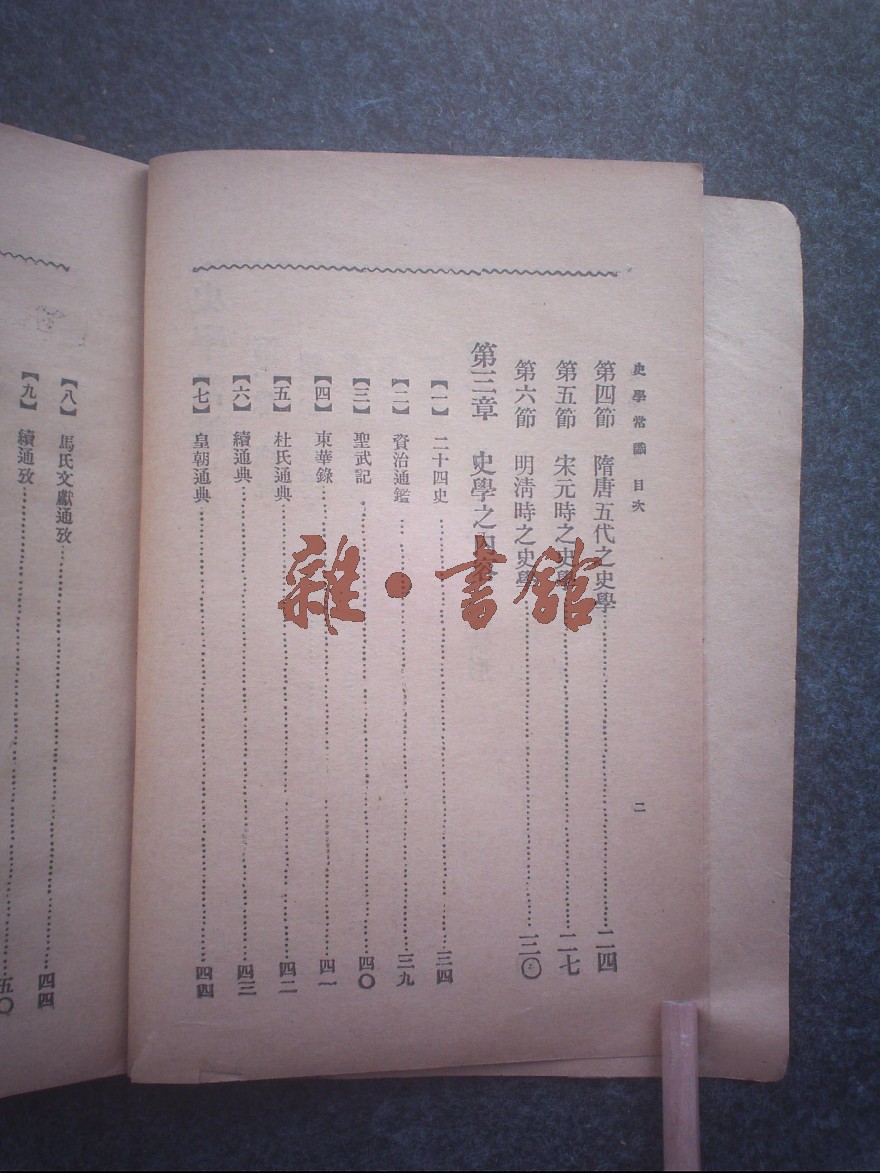 史學常識 目次
二
第四節 隋唐五代之史學……二四
第五節 宋元時之史學……二七
第六節 明清時之史學……三〇
第三章 史學之內容
【一】 二十四史……三四
【二】 資治通鑑……三九
【三】 聖武記……四〇
【四】 東華錄……四一
【五】 杜氏通典……四二
【六】 續通典……四三
【七】 皇朝通典……四四
【八】 馬氏文獻通攷……四四
【九】 續通攷……五〇
雜·書館